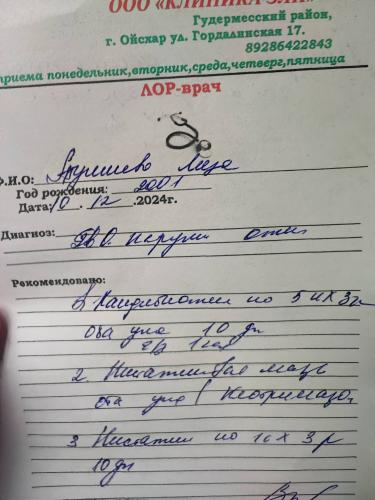 ООО «КЛИНИКА
Гудермесский район,
г. Ойсхар ул. Гордалинская 17.
89286422843
приема понедельник,вторник,среда,четверг,пятница
ЛОР-врач
Ф.И.О: Лиза
Год рождения: 2001
Дата: 10 . 12 .2024г.
Диагноз:
Рекомендовано:
1) Кандибиотик по 5 к х 3 р
оба уха 10 дн
2. Нистатиновая мазь
оба уха (Клотримазол
3 Нистатин по 1т х 3 р
10 дн